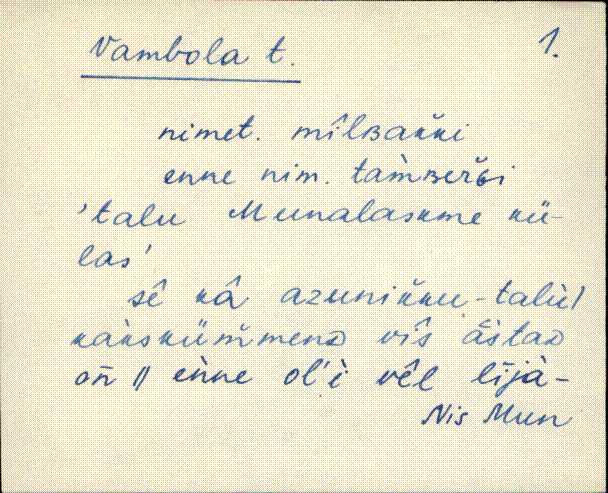 Vambola t. 1.
nimet. mîlʙaκ̌κi
enne nim. tam̀ʙerǧi
'talu Munalasκme κü-
las'
sê κâ azuniκ̌κu-talùl
κaκ̀sκüm̆menᴅ vîs ǡstaᴅ
oñ || eǹne ol'ì vêl lījà-
Nis Mun